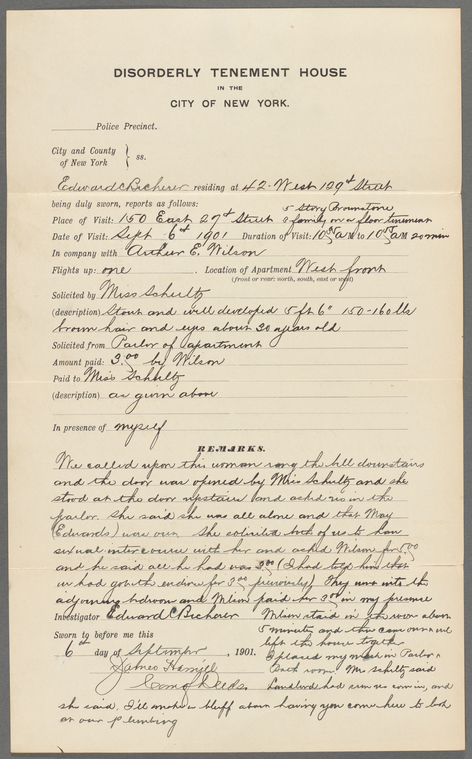 DISORDERLY TENEMENT HOUSE
IN THE
CITY OF NEW YORK.
Police Precinct.
City and County
of New York } ss.
Edward C Becherer residing at 42 West 129th Street
being duly sworn, reports as follows: 5 Story Brownstone
Place of Visit: 150 East 27th Street 2 family on a floor tenement
Date of Visit: Sept 6th 1901 Duration of Visit: AM to AM 20 min
In company with Arthur E. Wilson
Flights up: one . Location of Apartment West front
(front or rear: north, south, east or west)
Solicited by Miss Schultz
(description) Stout and well developed 5 ft 6" 150-160 lbs
brown hair and eyes about 30 years old
Solicited from Parlor of apartment
Amount paid: 3.00 by Wilson
Paid to Miss Schultz
(description) as given above
In presence of myself
REMARKS.
We called upon this woman rang the bell downstairs
and the door was opened by Miss Schultz and she
stood at the door upstairs and asked us in the
parlor. She said she was all alone and that May
(Edwards) were . She solicited both of us to have
sexual intercourse with her and asked Wilson for 5.00
and he said all he had was 3.00 (I had told him that
we had got the for 3.00 previously). They went into the
adjoining bedroom and Wilson paid her 3.00 in my presence
Investigator Edward C Becherer Wilson staid in the room about
5 minutes and then came out and
left the house together
Sworn to before me this
6th day of September , 1901.
I placed my mark in Parlor &
Back room. Miss Schultz said
James
Deeds.
Landlord had seen us come in, and
she said, I'll make a bluff about having you come here to look
at our plumbing